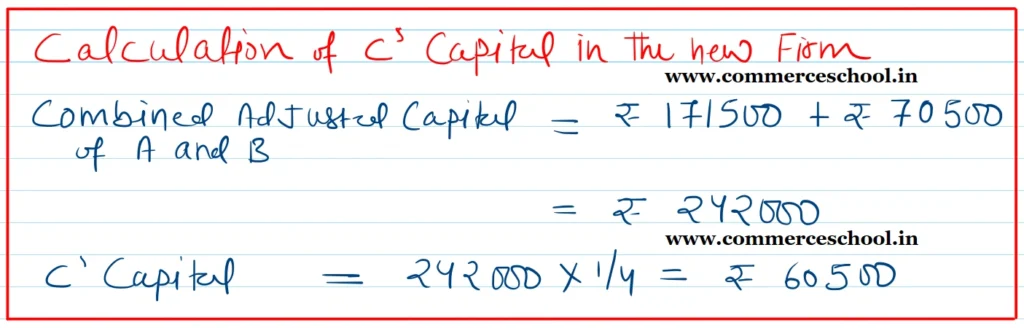 Calculation of C's Capital in the new Firm
www.commerceschool.in
Combined Adjusted Capital = ₹ 171500 + ₹ 70500
of A and B
= ₹ 242000
www.commerceschool.in
C' Capital = 242000 X 1/4 = ₹ 60500